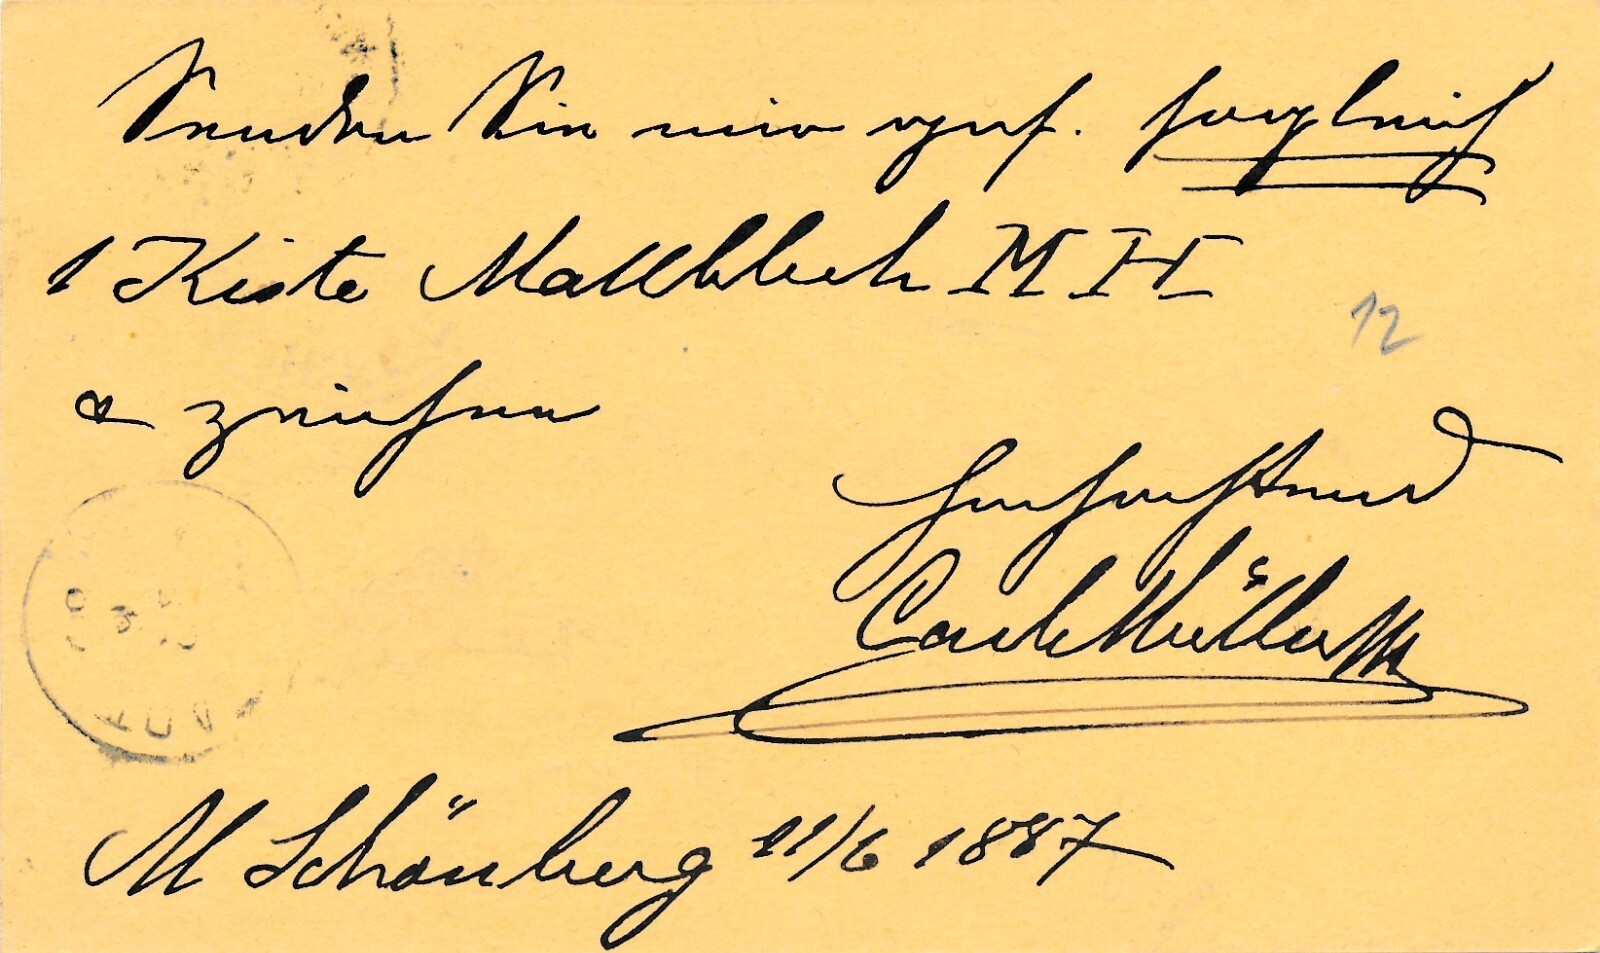 Senden Sie mir gef. sogleich
1 Kiste Mattblech M H
12
& zeichne
Hochachtend
Carl Müller
M Schönberg 11/6 1887